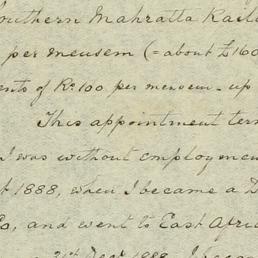 Southern Mahratta Rail
per mensem (=about £160
ents of Rs. 100 per mensem - up
This appointment ter
I was without employme
t 1888, when I became a D
Co, and went to East Afri
31st Decr. 1888. I